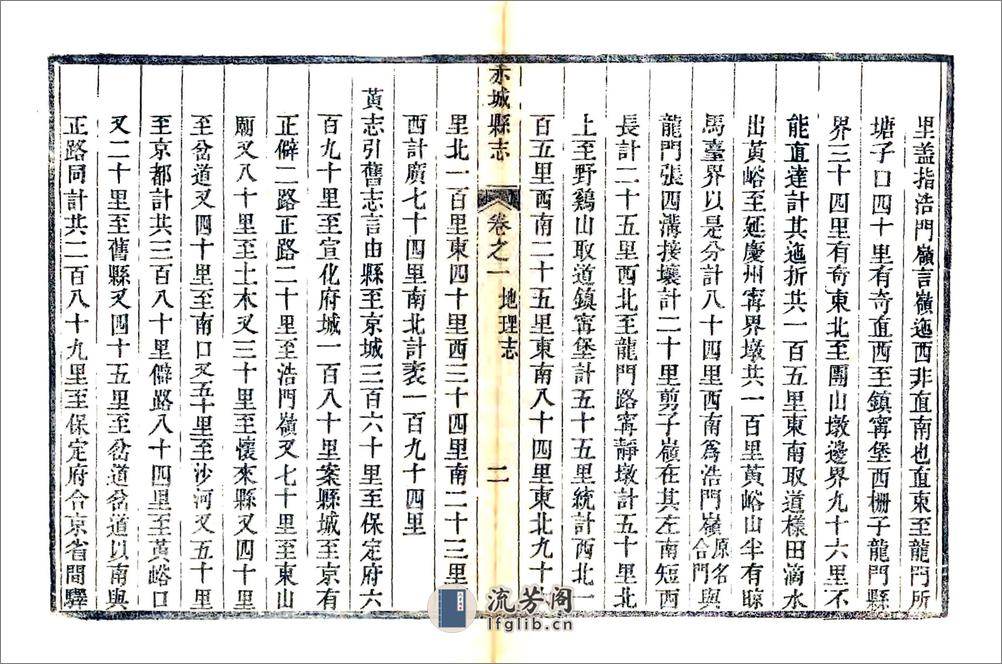 里蓋指浩門嶺言嶺迤西非直南也直東至龍門所
塘子口四十里有奇直西至鎮寧堡西柵子龍門縣
界三十四里有奇東北至團山墩邊界九十六里不
能直達計其迤折共一百五里東南取道樣田滴水
出黃峪至延慶州寧界墩共一百里黃峪山半有晾
馬臺界以是分計八十四里西南爲浩門嶺原名合門與
龍門張四溝接壤計二十里剪子嶺在其左南短西
長計二十五里西北至龍門路寧靜墩計五十里北
上至野鷄山取道鎮寧堡計五十五里統計西北一
百五里西南二十五里東南八十四里東北九十六
赤城縣志 卷之一 地理志 二
里北一百里東四十里西三十四里南二十三里東
西計廣七十四里南北計袤一百九十四里
黃志引舊志言由縣至京城三百六十里至保定府六
百九十里至宣化府城一百八十里案縣城至京有
正僻二路正路二十里至浩門嶺又七十里至東山
廟又八十里至土木又三十里至懷來縣又四十里
至岔道又四十里至南口又五十里至沙河又五十里
至京都計共三百八十里僻路八十四里至黃峪口
又二十里至舊縣又四十五里至岔道岔道以南與
正路同計共二百八十九里至保定府合京省間驛
流芳阁
lfglib.cn